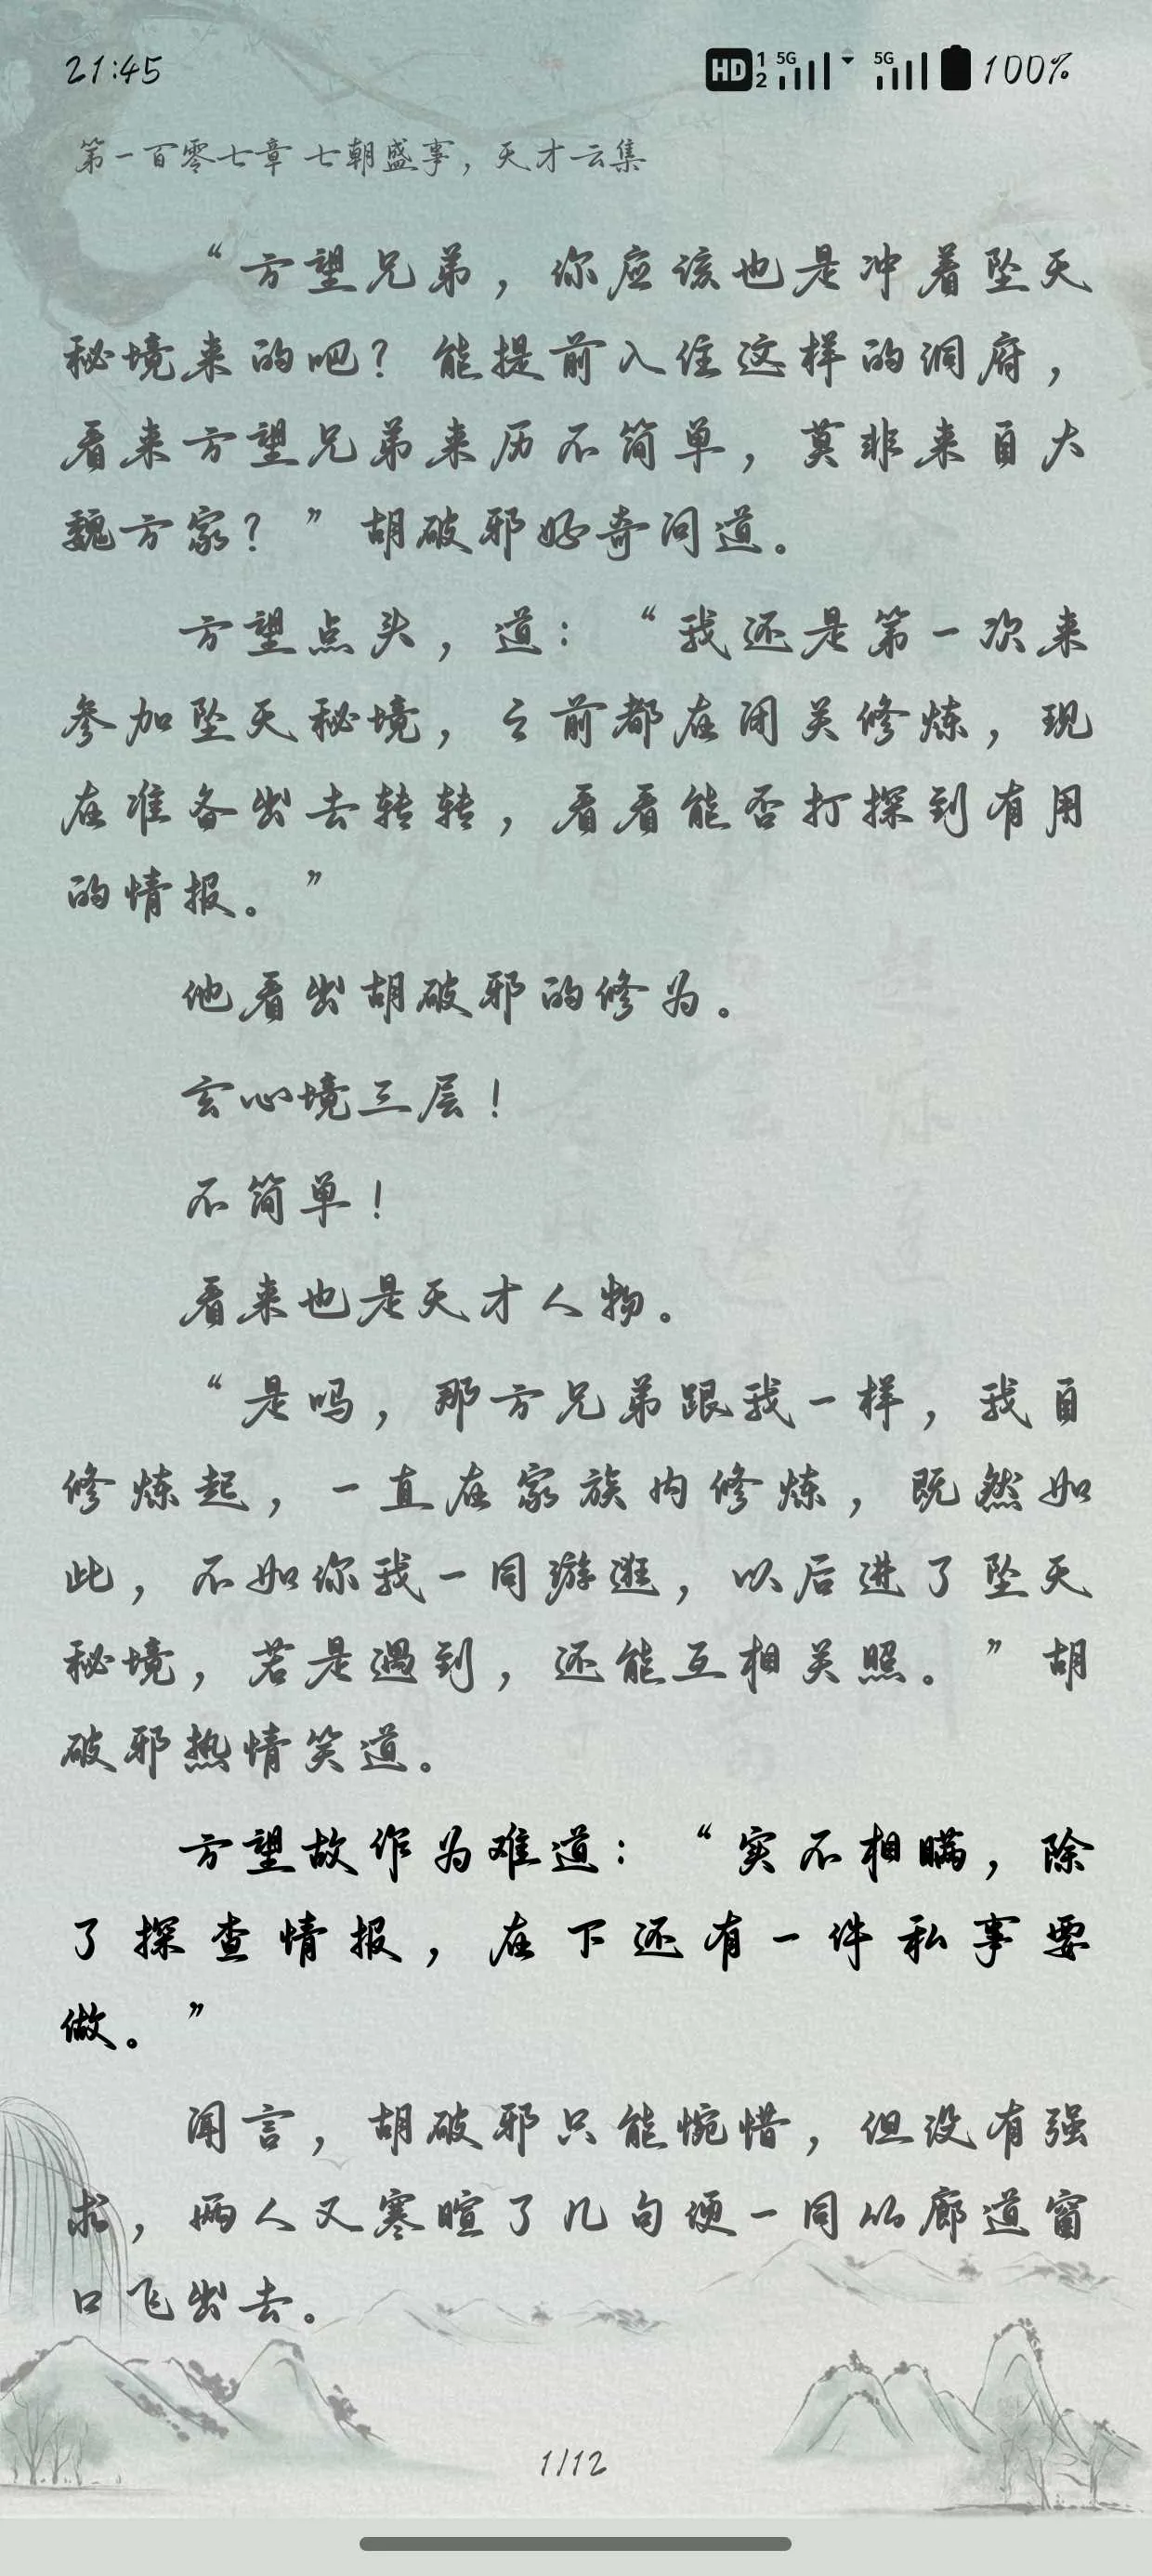 21:45
HD 1 2 5G 5G 100%
第一百零七章 七朝盛事，天才云集
“方望兄弟，你应该也是冲着坠天
秘境来的吧？能提前入住这样的洞府，
看来方望兄弟来历不简单，莫非来自大
魏方家？”胡破邪好奇问道。
方望点头，道：“我还是第一次来
参加坠天秘境，之前都在闭关修炼，现
在准备出去转转，看看能否打探到有用
的情报。”
他看出胡破邪的修为。
玄心境三层！
不简单！
看来也是天才人物。
“是吗，那方兄弟跟我一样，我自
修炼起，一直在家族内修炼，既然如
此，不如你我一同游逛，以后进了坠天
秘境，若是遇到，还能互相关照。”胡
破邪热情笑道。
方望故作为难道：“实不相瞒，除
了探查情报，在下还有一件私事要
做。”
闻言，胡破邪只能惋惜，但没有强
求，两人又寒暄了几句便一同从廊道窗
口飞出去。
1/12